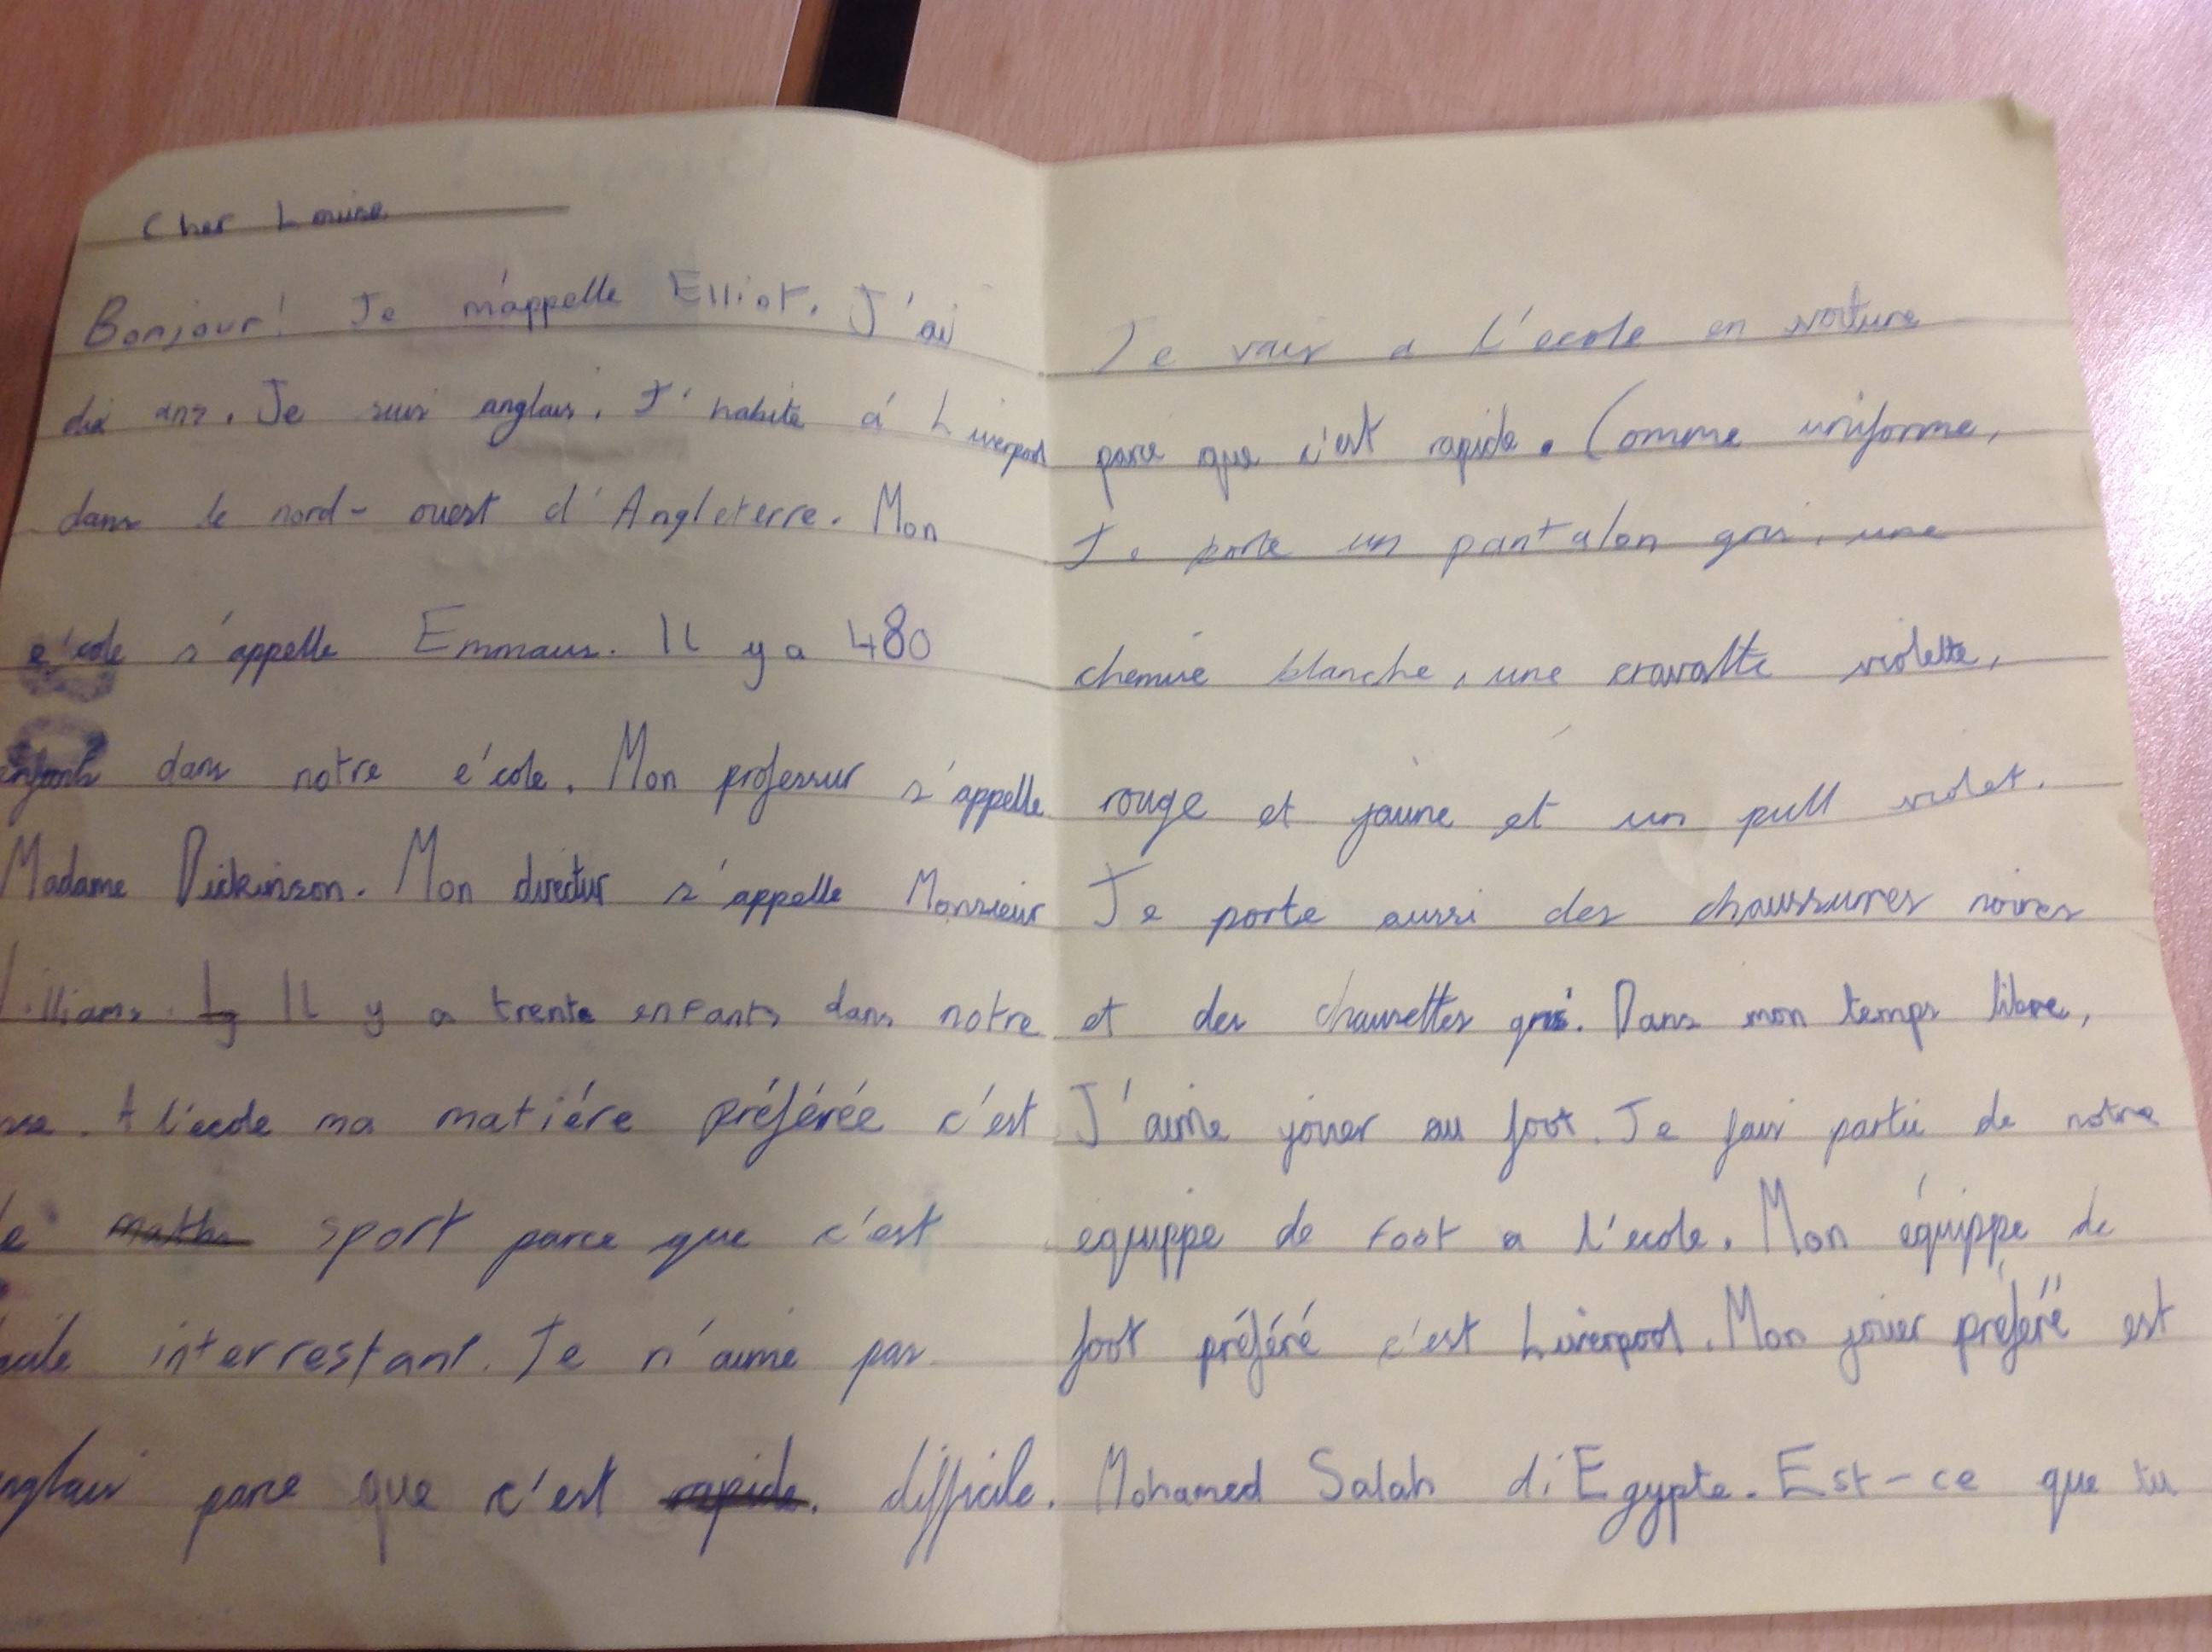 Cher Louise
Bonjour! Je m'appelle Elliot. J'ai
dix ans. Je suis anglais. J'habite á Liverpool
dans le nord-ouest d'Angleterre. Mon
e'cole s'appelle Emmaus. Il y a 480
enfants dans notre e'cole. Mon professur s'appelle
Madame Dickinson. Mon directur s'appelle Monsieur
illiams. Il y a trente enfants dans notre
sse. A l'école ma matiére préférée c'est
le maths sport parce que c'est
cile interrestant. Je n'aime pas
nglais parce que c'est rapide. difficile.
Je vais a l'ecole en voiture
parce que c'est rapide. Comme uniforme,
Je porte un pantalon gris, une
chemise blanche, une cravatte violette,
rouge et jaune et un pull violet.
Je porte aussi des chaussures noires
et des chausettes gris. Dans mon temps libre,
J'aime jouer au foot. Je fais partie de notre
equippe de foot a l'ecole. Mon équippe de
foot préféré c'est Liverpool. Mon jouer préféré est
Mohamed Salah d'Egypte. Est-ce que tu